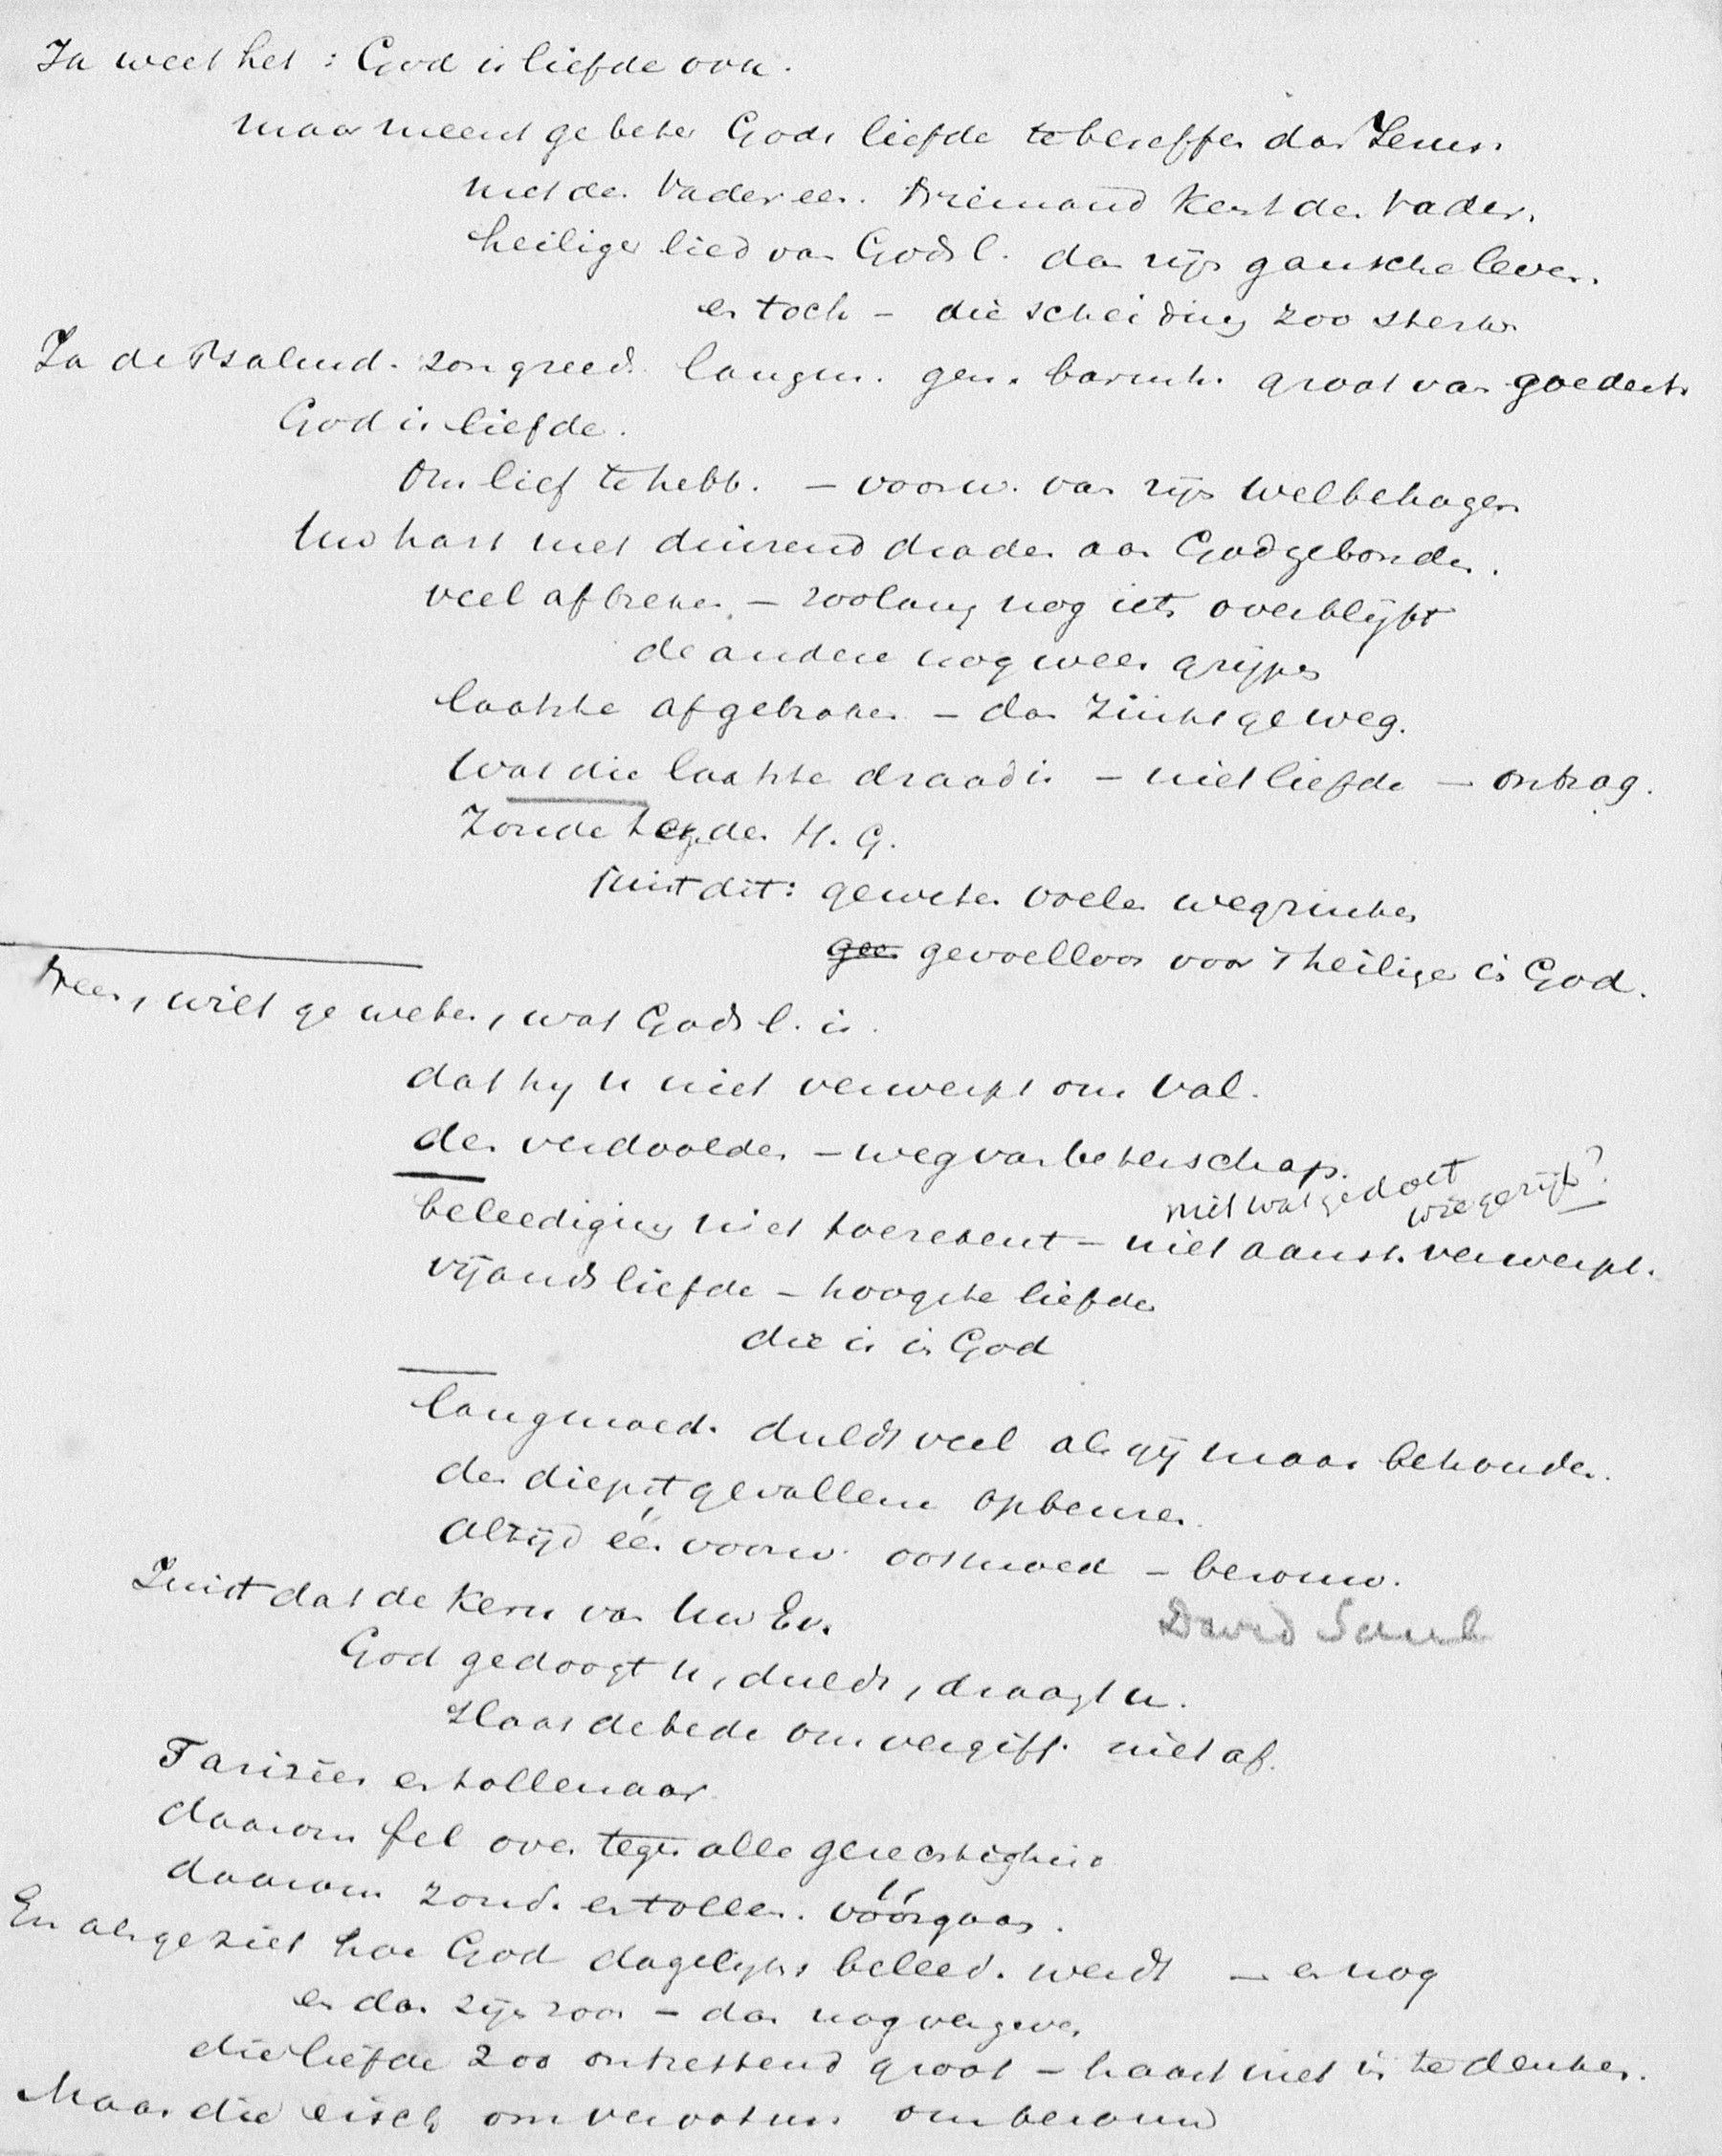 Ja weet het: God is liefde ook.
maar meent ge beter Gods liefde te beseffen dan Jezus.
met den Vader een. Niemand kent den Vader.
heiliger lied van Gods l. dan zijn gansche leven.
en toch – die scheiding zoo sterk
Ja de Psalmd. zong reeds langm. gen. barmh. groot van goedert.
God is liefde.
Om lief te hebb. – voorw. van zijn welbehagen
Uw hart met duizend draden aan God gebonden.
veel afbreken, – zoolang nog iets overblijft
de andere nog weer grijpen
laatste afgebroken – dan zinkt ge weg.
Wat die laatste draad is – niet liefde – ontzag.
Zonde tegen den H. G.
Juist dit: geweten voelen wegzinken
gee gevoelloos voor 't heilige in God.
Neen, wilt ge weten, wat Gods l. is.
dat hij u niet verwerpt om val.
den verdoolden – weg van beterschap.
niet wat ge doet
wie ge zijt?
beleediging niet toerekent – niet aanst. verwerpt.
vijandsliefde – hoogste liefde
die is in God
langmoed. duldt veel als gij maar behouden.
den diepst gevallene opbeuren.
altijd één voorw. ootmoed – berouw.
Juist dat de kern van Uw Ev.
David Saul
God gedoogt u, duldt, draagt u.
Slaat de bede om vergiff. niet af.
Farizeër en tollenaar
daarom fel over tegen alle gerechtigheid
daarom zond. en tollen. vóórgaan.
En als ge ziet hoe God dagelijks beleed. werdt – en nog
en dan zijn zoon – dan nog vergeven
die liefde zoo ontzettend groot – haast niet in te denken.
Maar die eisch om verootm. om berouw